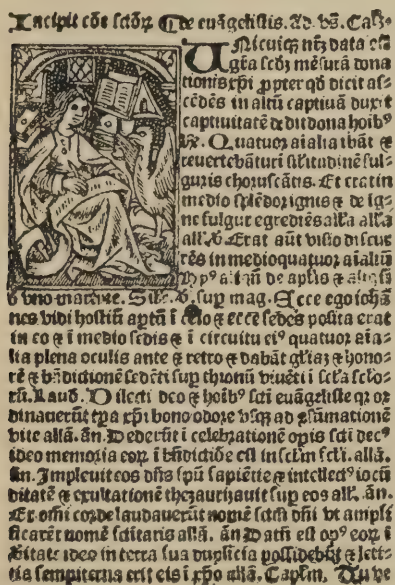 Incipit cōe sctōꝝ De euāgelistis. Ad. vs̄. Capꝉ.
Unicuiqꝫ nr̄ꝫ data est
gr̄a scd̄ꝫ mēsurā dona
tionis xp̄i ꝓpter qd̄ dicit as⸗
cēdēs in altū captiuā duxit
captiuitatē ⁊ dedit dona hoībꝰ
Quatuor aīalia ibāt ⁊
reuertebātur ī silitudinē ful⸗
guris choruscātis. Et erat in
medio splēdor ignis ⁊ de ig⸗
ne fulgur egrediēs alꝉa alꝉa
Erat aūt visio discur
rēs in medio quatuor aīaliū
de apl̄is ⁊
vno martire. sup mag. Ecce ego iohā
nes vidi hostiū aptū ī celo ⁊ ecce sedes posita erat
in eo ⁊ ī medio sedis ⁊ ī circuitu eiꝰ quatuor aīa⸗
lia plena oculis ante ⁊ retro ⁊ dabāt gl̄iaꝫ ⁊ hono⸗
rē ⁊ bn̄dictionē sedēti sup thronū viuēti ī scl̄a scl̄o⸗
rū. Laud. Dilecti deo ⁊ hoībꝰ scti euāgeliste qr or
dinauerūt tꝑa xp̄i bono odore vsqꝫ ad ꝯsumationē
vite allā. ān. Dederūt ī celebrationē opis scti decꝰ
ideo memoria eoꝝ ī bn̄dictiōe est in scl̄m scl̄i. allā.
ān. Impleuit eos dn̄s spū sapiētie ⁊ intellectꝰ iocū
ditatē ⁊ exultationē thezaurisauit sup eos all̄. ān.
Ex om̄i corde laudauerūt nomē sctm̄ dn̄i vt ampli
ficarēt nomē sctitatis allā. ān Datū est opꝰ eoꝝ ī
ꝟitate ideo in terra sua duplicia possidebūt ⁊ leti⸗
tia sempiterna erit eis ī xp̄o allā. Capl̄m.